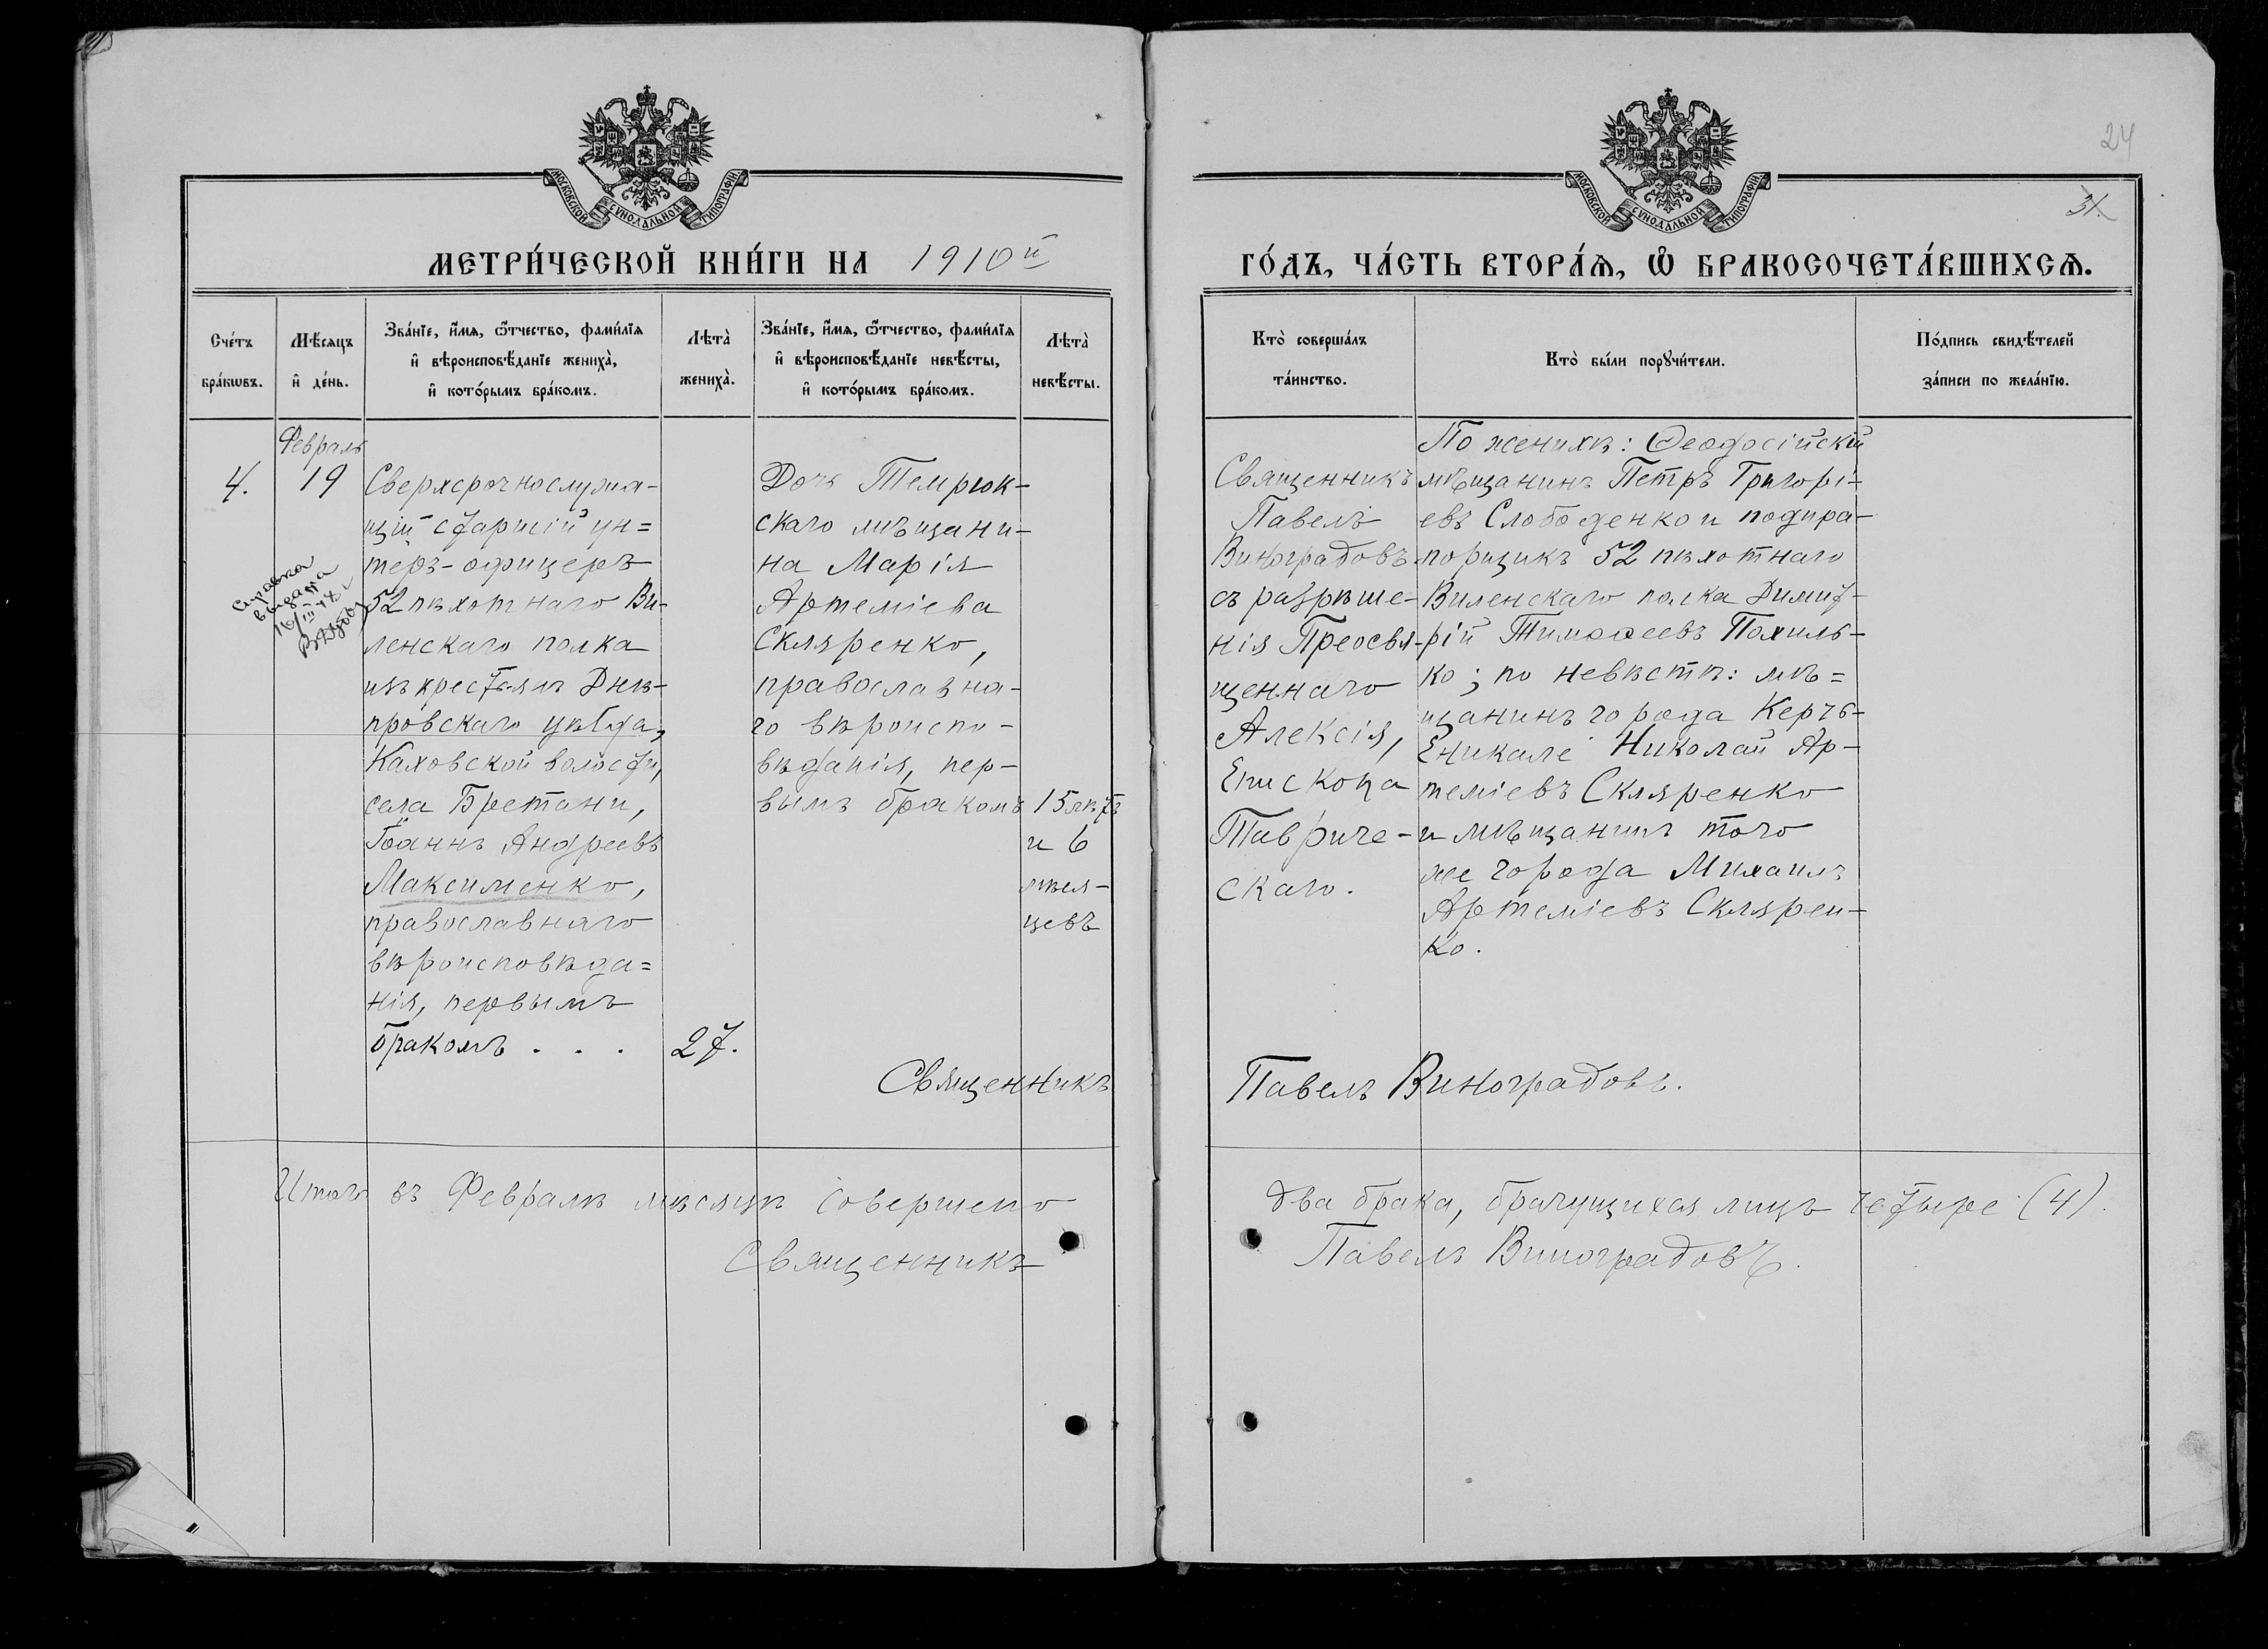 24
31.
МОСКОВСКОЙ СѴНОДАЛЬНОЙ ТИПОГРАФІИ
МЕТРИ́ЧЕСКОЙ КНИ́ГИ НА 1910й
Сче́тъ бра́кωвъ.
Мѣ́сяцъ и҆ де́нь.
Зва́нїе, и҆́мя, ѻ҆́тчество, фами́лїя
и҆ вѣроисповѣ́данїе жениха̀,
и҆ кото́рымъ бра́комъ.
Лѣта̀ жениха̀.
Зва́нїе, и҆́мя, ѻ҆́тчество, фами́лїя
и҆ вѣроисповѣ́данїе невѣ́сты,
и҆ кото́рымъ бра́комъ.
Лѣта̀ невѣ́сты.
4.
Февраль
19
Справка
выдана
16/III
Сверхсрочнослужа-
щій старшій ун=
теръ-офицеръ
52 пѣхотнаго Ви-
ленскаго полка
изъ крестьянъ Днѣ-
провскаго уѣзда,
Каховской волости,
села Бретани,
Іоаннъ Андреевъ
Максименко,
православнаго
вѣроисповѣда=
нія, первымъ
бракомъ . . .
27.
Дочь Темрюк-
скаго мѣщани-
на Марія
Артеміева
Скляренко,
православна-
го вѣроиспо-
вѣданія, пер-
вымъ бракомъ
15 лѣтъ
и 6
мѣся-
цевъ
Священникъ
Итого въ Февралѣ мѣсяцѣ совершено
Священникъ
МОСКОВСКОЙ СѴНОДАЛЬНОЙ ТИПОГРАФІИ
ГО́ДЪ, ЧА́СТЬ ВТОРА́Я, Ѽ БРАКОСОЧЕТА́ВШИХСЯ.
Кто̀ соверша́лъ
та́инство.
Кто̀ бы́ли порꙋчи́тели.
По́дпись свидѣ́телей
за́писи по жела́нїю.
Священникъ
Павелъ
Виноградовъ
съ разрѣше-
нія Преосвя-
щеннаго
Алексія,
Епископа
Тавриче-
скаго.
По женихѣ: Ѳеодосійскій
мѣщанинъ Петръ Григорі-
евъ Слободенко и подпра-
порщикъ 52 пѣхотнаго
Виленскаго полка Димит-
рій Тимоѳеевъ Похиль-
ко; по невѣстѣ: мѣ=
щанинъ города Керчь-
Еникале Николай Ар-
теміевъ Скляренко
и мѣщанинъ того
же города Михаилъ
Артеміевъ Склярен-
ко.
Павелъ Виноградовъ.
два брака, брачущихся лицъ четыре (4).
Павелъ Виноградовъ.